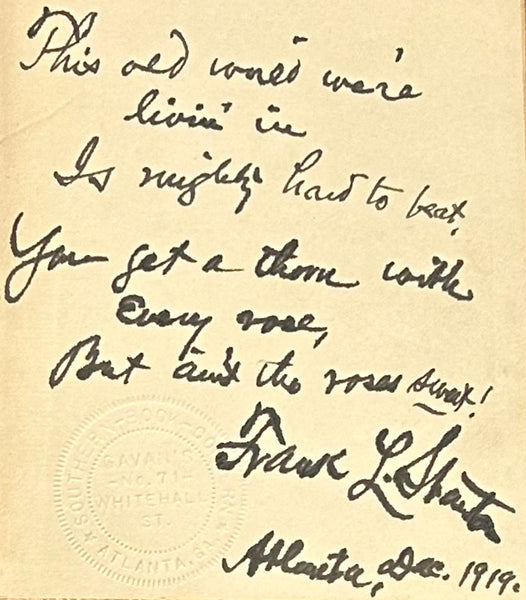 This old world we're
livin' in
Is mighty hard to beat,
You get a thorn with
every rose,
But ain't the roses sweet!
Frank L. Stanton
Atlanta, Dec. 1919.
SOUTHERN BOOK
GAVAN'S
NO 71
WHITEHALL
ST.
ATLANTA, GA.